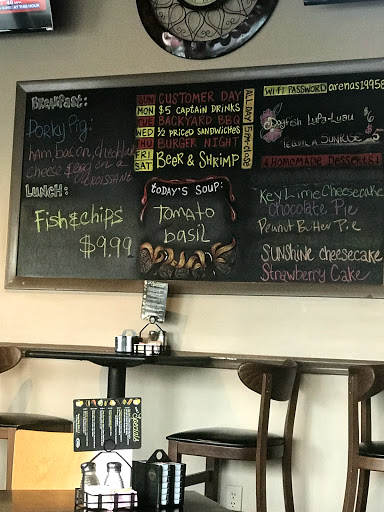 Breakfast:
Porky Pig:
ham, bacon, cheddar
cheese & egg on a
CROISSANT
LUNCH:
Fish & chips
$9.99
SUN CUSTOMER DAY
MON $5 CAPTAIN DRINKS
TUE BACKYARD BBQ
WED ½ PRICED SANDWICHES
THU BURGER NIGHT
FRI BEER & SHRIMP
SAT
ALL DAY 5AM-close
today's Soup:
tomato
basil
WI-FI PASSWORD arenas1995
Dogfish Lupa-Luau 6
TEQUILA SUNRISE 5
HOMEMADE DESSERTS!
Key Lime Cheesecake
Chocolate Pie
Peanut Butter Pie
SUNSHINE cheesecake
Strawberry Cake
Specials